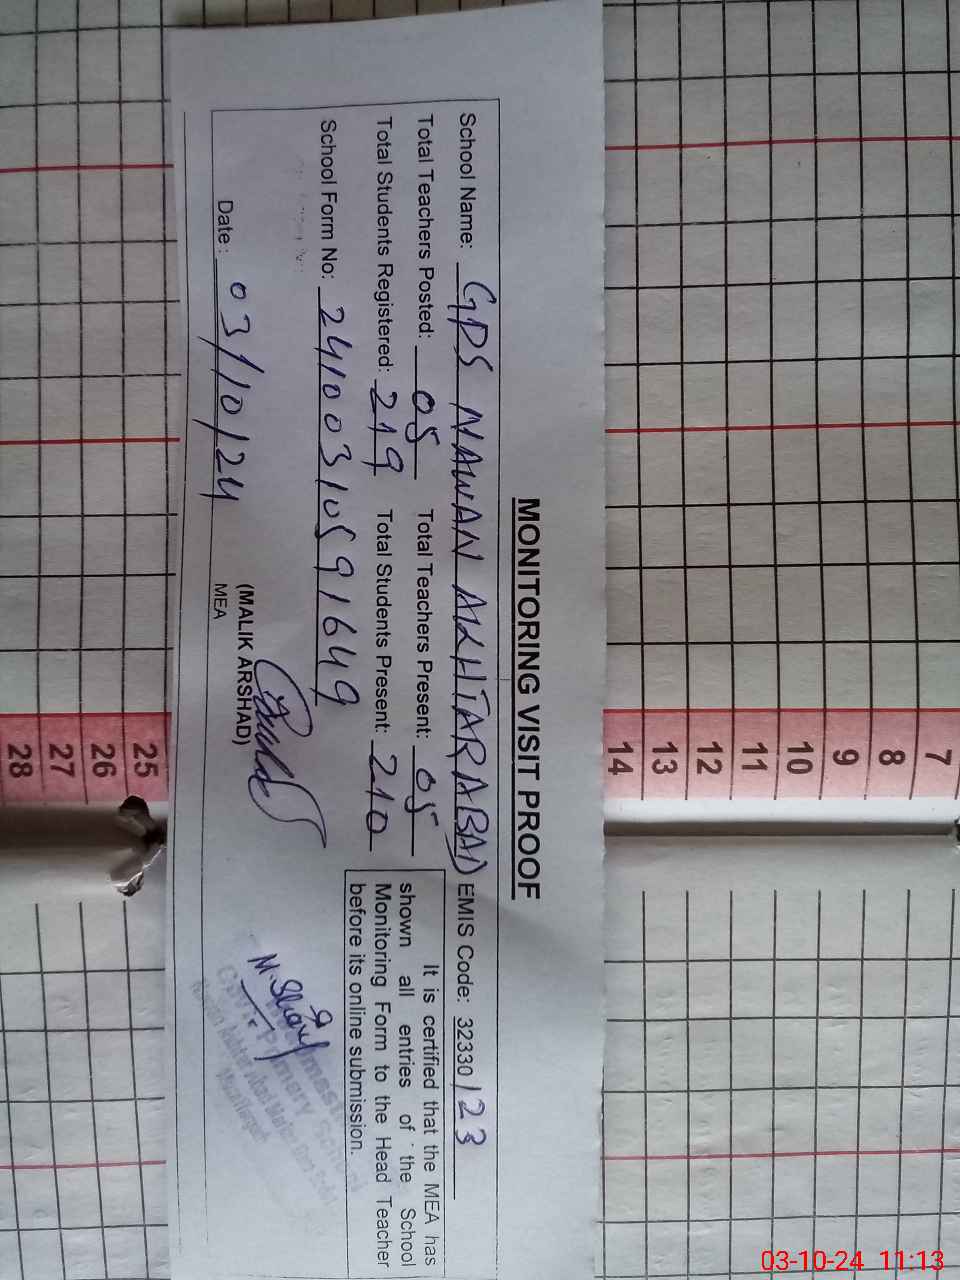 MONITORING VISIT PROOF
School Name: GPS NAWAN AKHTARABAD EMIS Code: 32330123
Total Teachers Posted: 05 Total Teachers Present: 05
Total Students Registered: 219 Total Students Present: 210
School Form No: 24100310591649
It is certified that the MEA has
shown all entries of the School
Monitoring Form to the Head Teacher
before its online submission.
Date: 03/10/24
(MALIK ARSHAD)
MEA
M. Sharif
Primary School
7
8
9
10
11
12
13
14
25
26
27
28
03-10-24 11:13